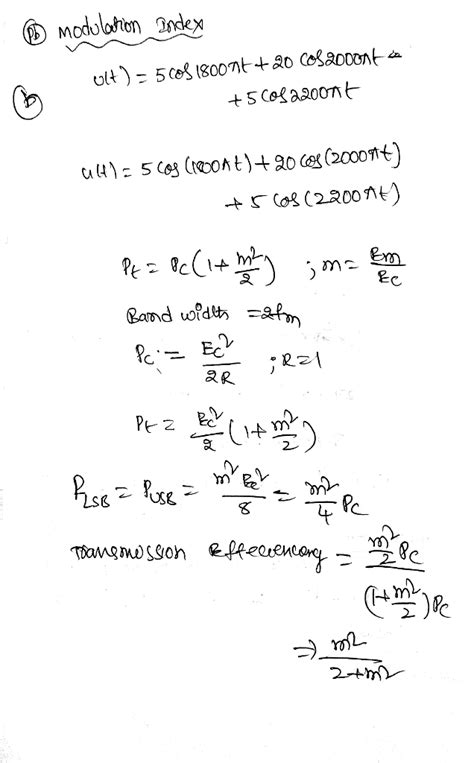 Pb Modulation Index
u(t) = 5 cos 1800πt + 20 cos 2000πt
b
+ 5 cos 2200πt
u(t) = 5 cos (1800πt) + 20 cos (2000πt)
+ 5 cos (2200πt)
Pt = Pc (1 + m²/2) ; m = Em/Ec
Band width = 2fm
Pc = Ec²/2R ; R = 1
Pt = Ec²/2 (1 + m²/2)
PLSB = PUSB = m² Ec²/8 = m²/4 Pc
Transmission Effeciencny = m²/2 Pc / (1 + m²/2) Pc
⇒ m²/2+m²